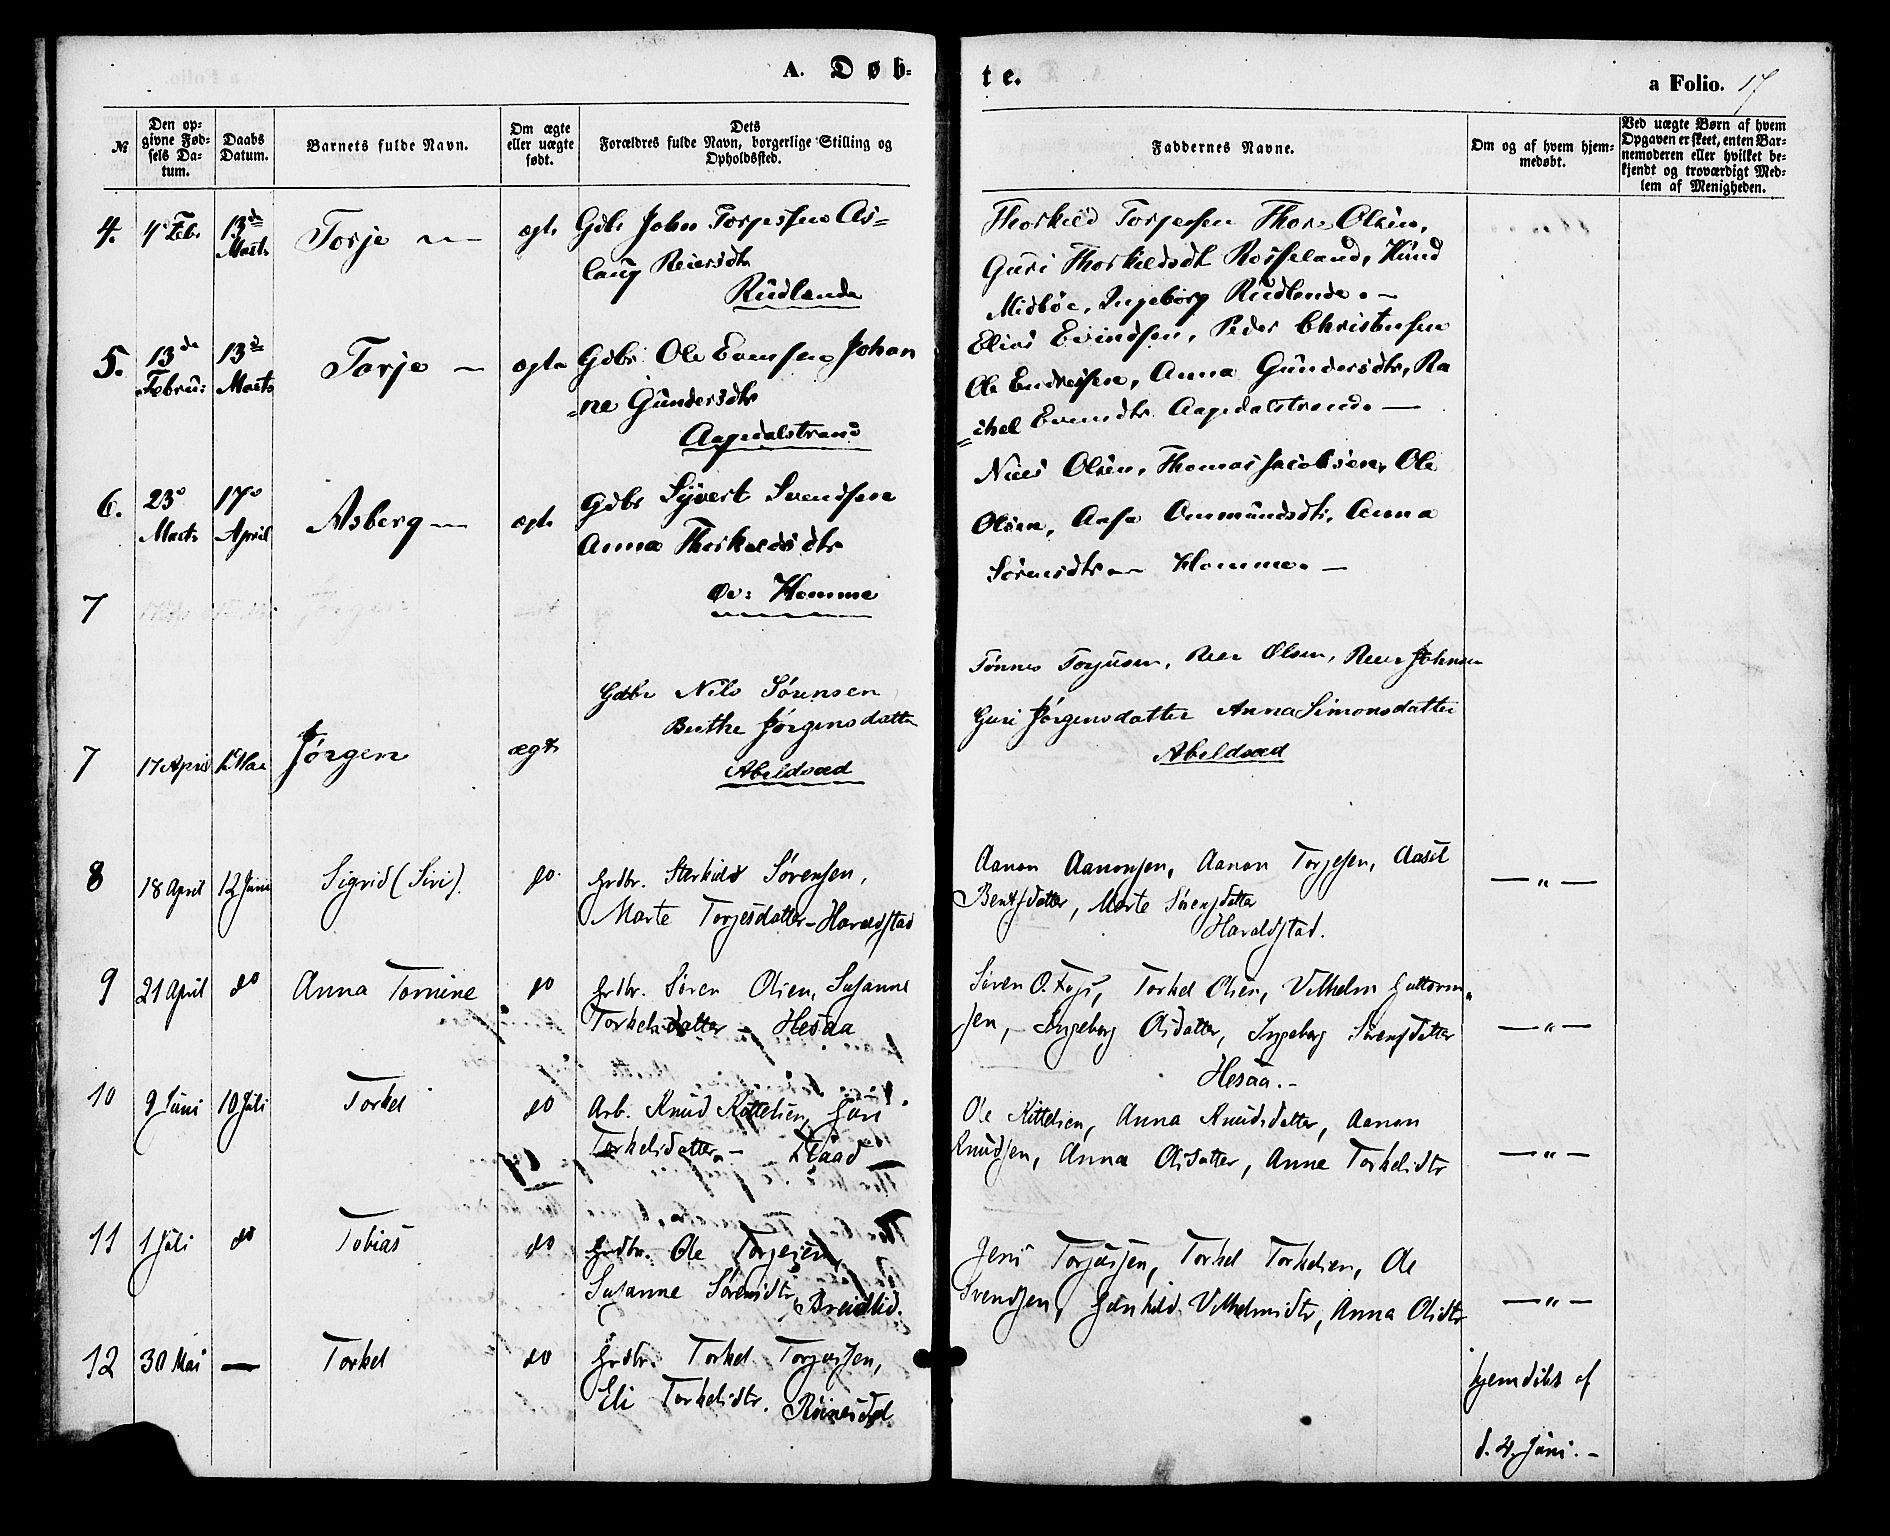 A. Døb-
te.
a Folio. 17
№
Den op-
givne Fød-
sels Da-
tum.
Daabs
Datum.
Barnets fulde Navn.
Om ægte
eller uægte
født.
Dets
Forældres fulde Navn, borgerlige Stilling og
Opholdssted.
Faddernes Navne.
Om og af hvem hjem-
medøbt.
Ved uægte Børn af hvem
Opgaven er skeet, enten Bar-
nemoderen eller hvilket be-
kjendt og troværdigt Med-
lem af Menigheden.
4. 4 Feb. 13de Torje ægte Gdbr John Torjessen As-
Marts
laug Reiersdtr
Rudlende
Thorkild Torjessen Thore Olsen,
Guri Thorkildsdt Rosseland, Knud
Midbøe, Ingeborg Rudlende. —
5. 13de 13de Torje — ægte Gdbr Ole Evensen, Johan
Febru: Marts
=ne Gundersdtr
Aapedalstrand
Elias Evindsen, Peder Christensen
Ole Endresen, Anna Gundersdtr, Ra
=chel Evendtr Aapedalstrand. —
6. 23de 17de Asberg — ægte Gdbr Syvert Svendsen
Marts April
Anna Thorkildsdtr
Øv: Homme
Niels Olsen, Thomas Jacobsen, Ole
Olsen, Aase Ommundsdtr, Anna
Sørensdtr — Homme. —
7
7 17 April Jørgen ægte
Gdbr Nils Sørensen
Berthe Jørgensdatter
Abeldsæd
Tønnes Torjusen, Reier Olsen, Reier Johnsen
Guri Jørgensdatter Anna Simonsdatter
Abeldsæd
8 18 April 12 Juni Sigrid (Siri). do. Grdbr. Sterkild Sørensen,
Marte Torjesdatter — Haraldstad
Aanon Aanonsen, Aanon Torjesen, Aasel
Bentsdatter, Marte Sørensdatter
Haraldstad.
— " —
9 21 April do Anna Tomine do Grdbr. Søren Olsen, Susanne
Torkelsdatter — Hesaa
Søren O. Fojs, Torkel Olsen, Vilhelm Guttorm-
sen, — Ingeborg Olsdatter, Ingeborg Sørensdatter
Hesaa. —
— " —
10 9 Juni 10 Juli Torkel do Arb. Knud Kittelsen, Guri
Torkelsdatter. —
Ole Kittelsen, Anna Knudsdatter, Aanon
Knudsen, Anna Olsdatter, Anne Torkelsdtr
— " —
11 1 Juli do Tobias do Grdbr. Ole Torjesen,
Susanne Sørensdtr, Breidlid.
Jens Torjussen, Torkel Torkelsen, Ole
Svendsen, Gunhild Vilhelmsdtr, Anna Olsdtr
— " —
12 30 Mai — Torkel do Grdbr. Torkel Torjussen,
Eli Torkelsdtr. Røinesdal
hjemdøbt af
d. 4. Juni. —